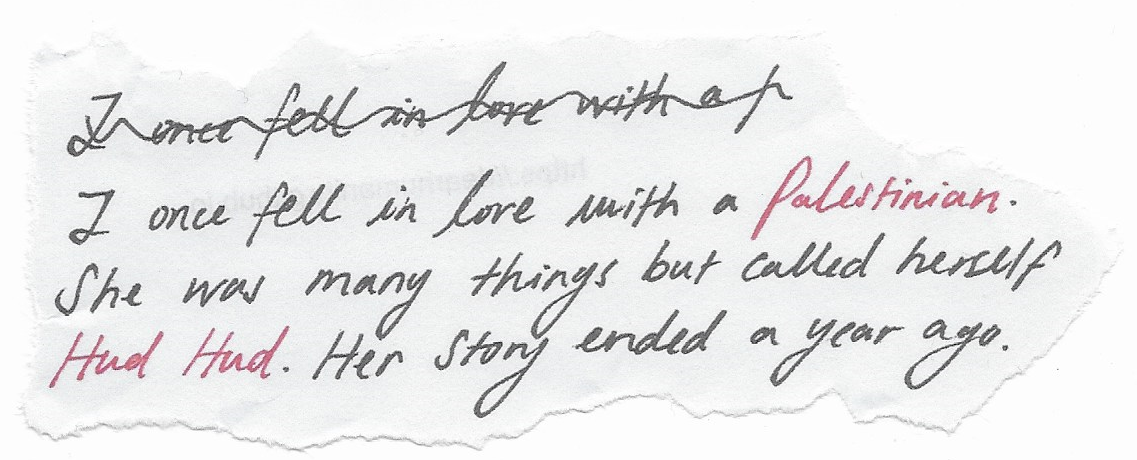 I once fell in love with a p
I once fell in love with a Palestinian.
She was many things but called herself
Hud Hud. Her story ended a year ago.